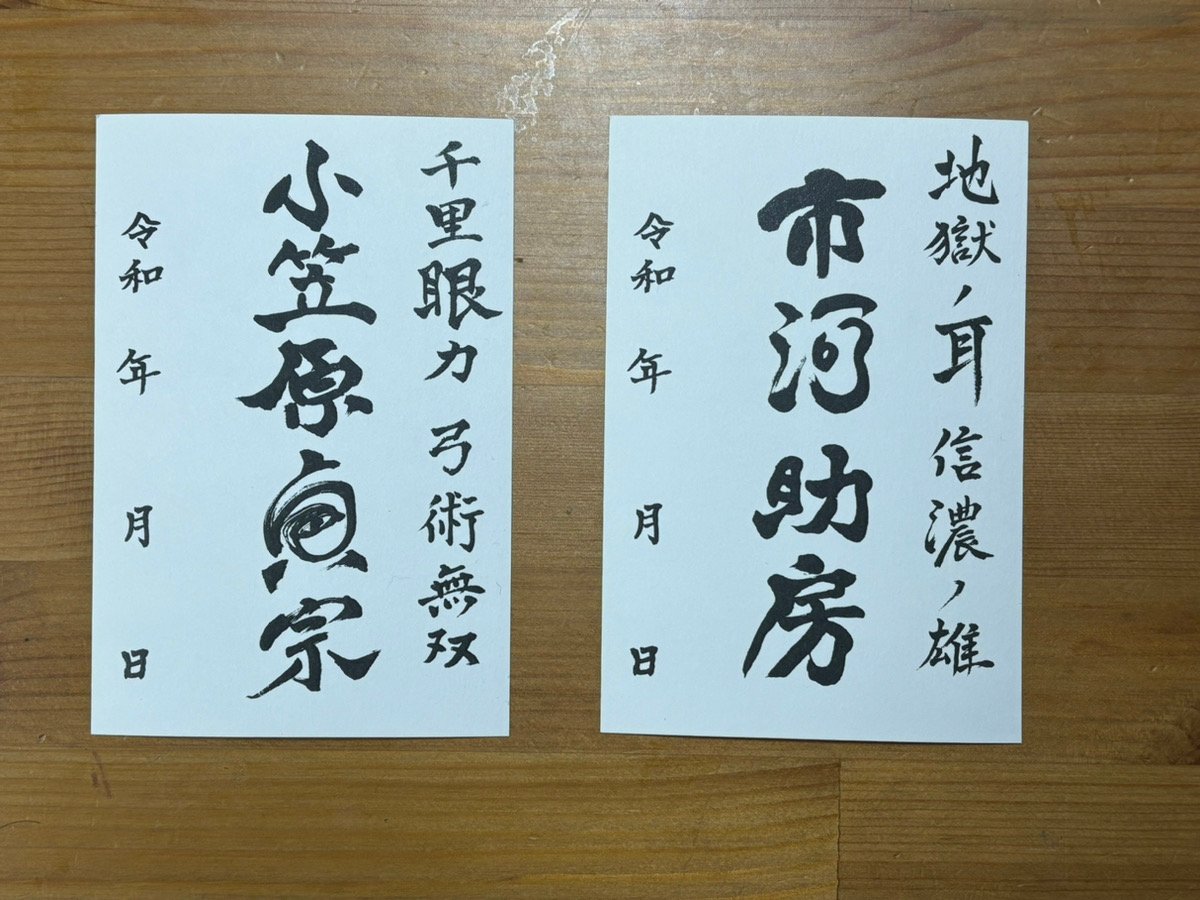 地獄ノ耳 信濃ノ雄
市河助房
令和 年 月 日
千里眼力 弓術無双
小笠原貞宗
令和 年 月 日